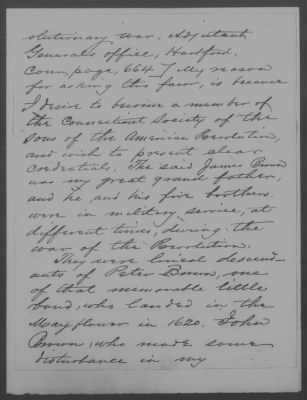 olutionary war, Adjutant
Generals office, Hartford,
Conn, page, 664] My reason
for asking this favor, is because
I desire to become a member of
the Connecticut Society of the
sons of the American Revolution,
and wish to present clear
credentials. The said James Brown
was my great grand father,
and he and his five brothers
were in military service, at
different times, during the
war of the Revolution.
They were lineal descend-
ants of Peter Brown, one
of that memorable little
band, who landed in the
Mayflower in 1620. John
Brown, who made some
disturbance in my